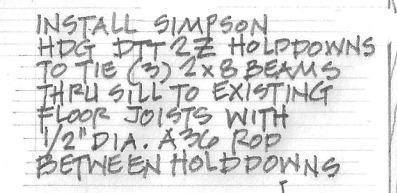 INSTALL SIMPSON
HDG DTT2Z HOLDDOWNS
TO TIE (3) 2x8 BEAMS
THRU SILL TO EXISTING
FLOOR JOISTS WITH
1/2" DIA. A36 ROD
BETWEEN HOLDDOWNS